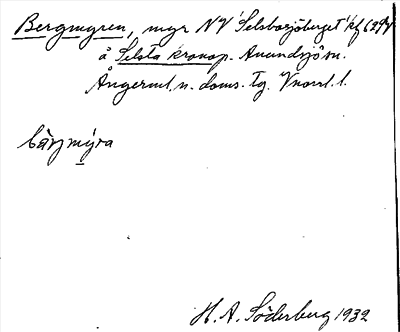 Bergmyren, myr NV Selsborjöberget kf 629V
å Selsta kronop. Anundsjö sn.
Ångerml. n. doms. tg. Vnorrl. l.
bärjmýra
H. A. Söderberg 1932